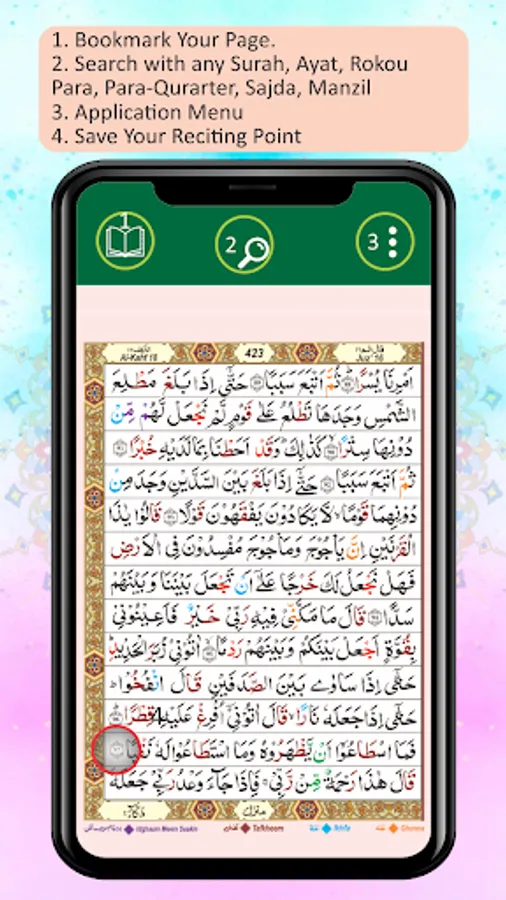 1. Bookmark Your Page.
2. Search with any Surah, Ayat, Rokou
Para, Para-Qurarter, Sajda, Manzil
3. Application Menu
4. Save Your Reciting Point
1
2
3
Al-Kahf 18
423
Juz' 16
اَمْرِنَا يُسْرًا ثُمَّ اَتْبَعَ سَبَبًا حَتّٰۤى اِذَا بَلَغَ مَطْلِعَ
الشَّمْسِ وَجَدَهَا تَطْلُعُ عَلٰى قَوْمٍ لَّمْ نَجْعَلْ لَّهُمْ مِّنْ
دُوْنِهَا سِتْرًا كَذٰلِكَ وَقَدْ اَحَطْنَا بِمَا لَدَيْهِ خُبْرًا
ثُمَّ اَتْبَعَ سَبَبًا حَتّٰۤى اِذَا بَلَغَ بَيْنَ السَّدَّيْنِ وَجَدَ مِنْ
دُوْنِهِمَا قَوْمًا لَّا يَكَادُوْنَ يَفْقَهُوْنَ قَوْلًا قَالُوْا يٰذَا
الْقَرْنَيْنِ اِنَّ يَاْجُوْجَ وَمَاْجُوْجَ مُفْسِدُوْنَ فِى الْاَرْضِ
فَهَلْ نَجْعَلُ لَكَ خَرْجًا عَلٰۤى اَنْ تَجْعَلَ بَيْنَنَا وَبَيْنَهُمْ
سَدًّا قَالَ مَا مَكَّنِّىْ فِيْهِ رَبِّىْ خَيْرٌ فَاَعِيْنُوْنِىْ
بِقُوَّةٍ اَجْعَلْ بَيْنَكُمْ وَبَيْنَهُمْ رَدْمًا اٰتُوْنِىْ زُبَرَ الْحَدِيْدِ
حَتّٰۤى اِذَا سَاوٰى بَيْنَ الصَّدَفَيْنِ قَالَ انْفُخُوْا
حَتّٰۤى اِذَا جَعَلَهٗ نَارًا قَالَ اٰتُوْنِىْۤ اُفْرِغْ عَلَيْهِ قِطْرًا
4
فَمَا اسْطَاعُوْۤا اَنْ يَّظْهَرُوْهُ وَمَا اسْتَطَاعُوْا لَهٗ نَقْبًا
قَالَ هٰذَا رَحْمَةٌ مِّنْ رَّبِّىْ فَاِذَا جَآءَ وَعْدُ رَبِّىْ جَعَلَهٗ
Idghaam Meem Saakin
Tafkheem
Ikhfa
Ghunna